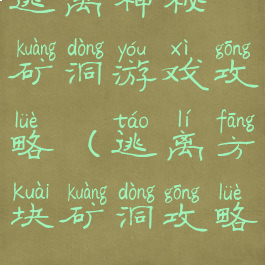 逃离神秘
kuàng dòng yóu xì gōng
矿洞游戏攻
lüè táo lí fāng
略(逃离方
kuài kuàng dòng gōng lüè
块矿洞攻略